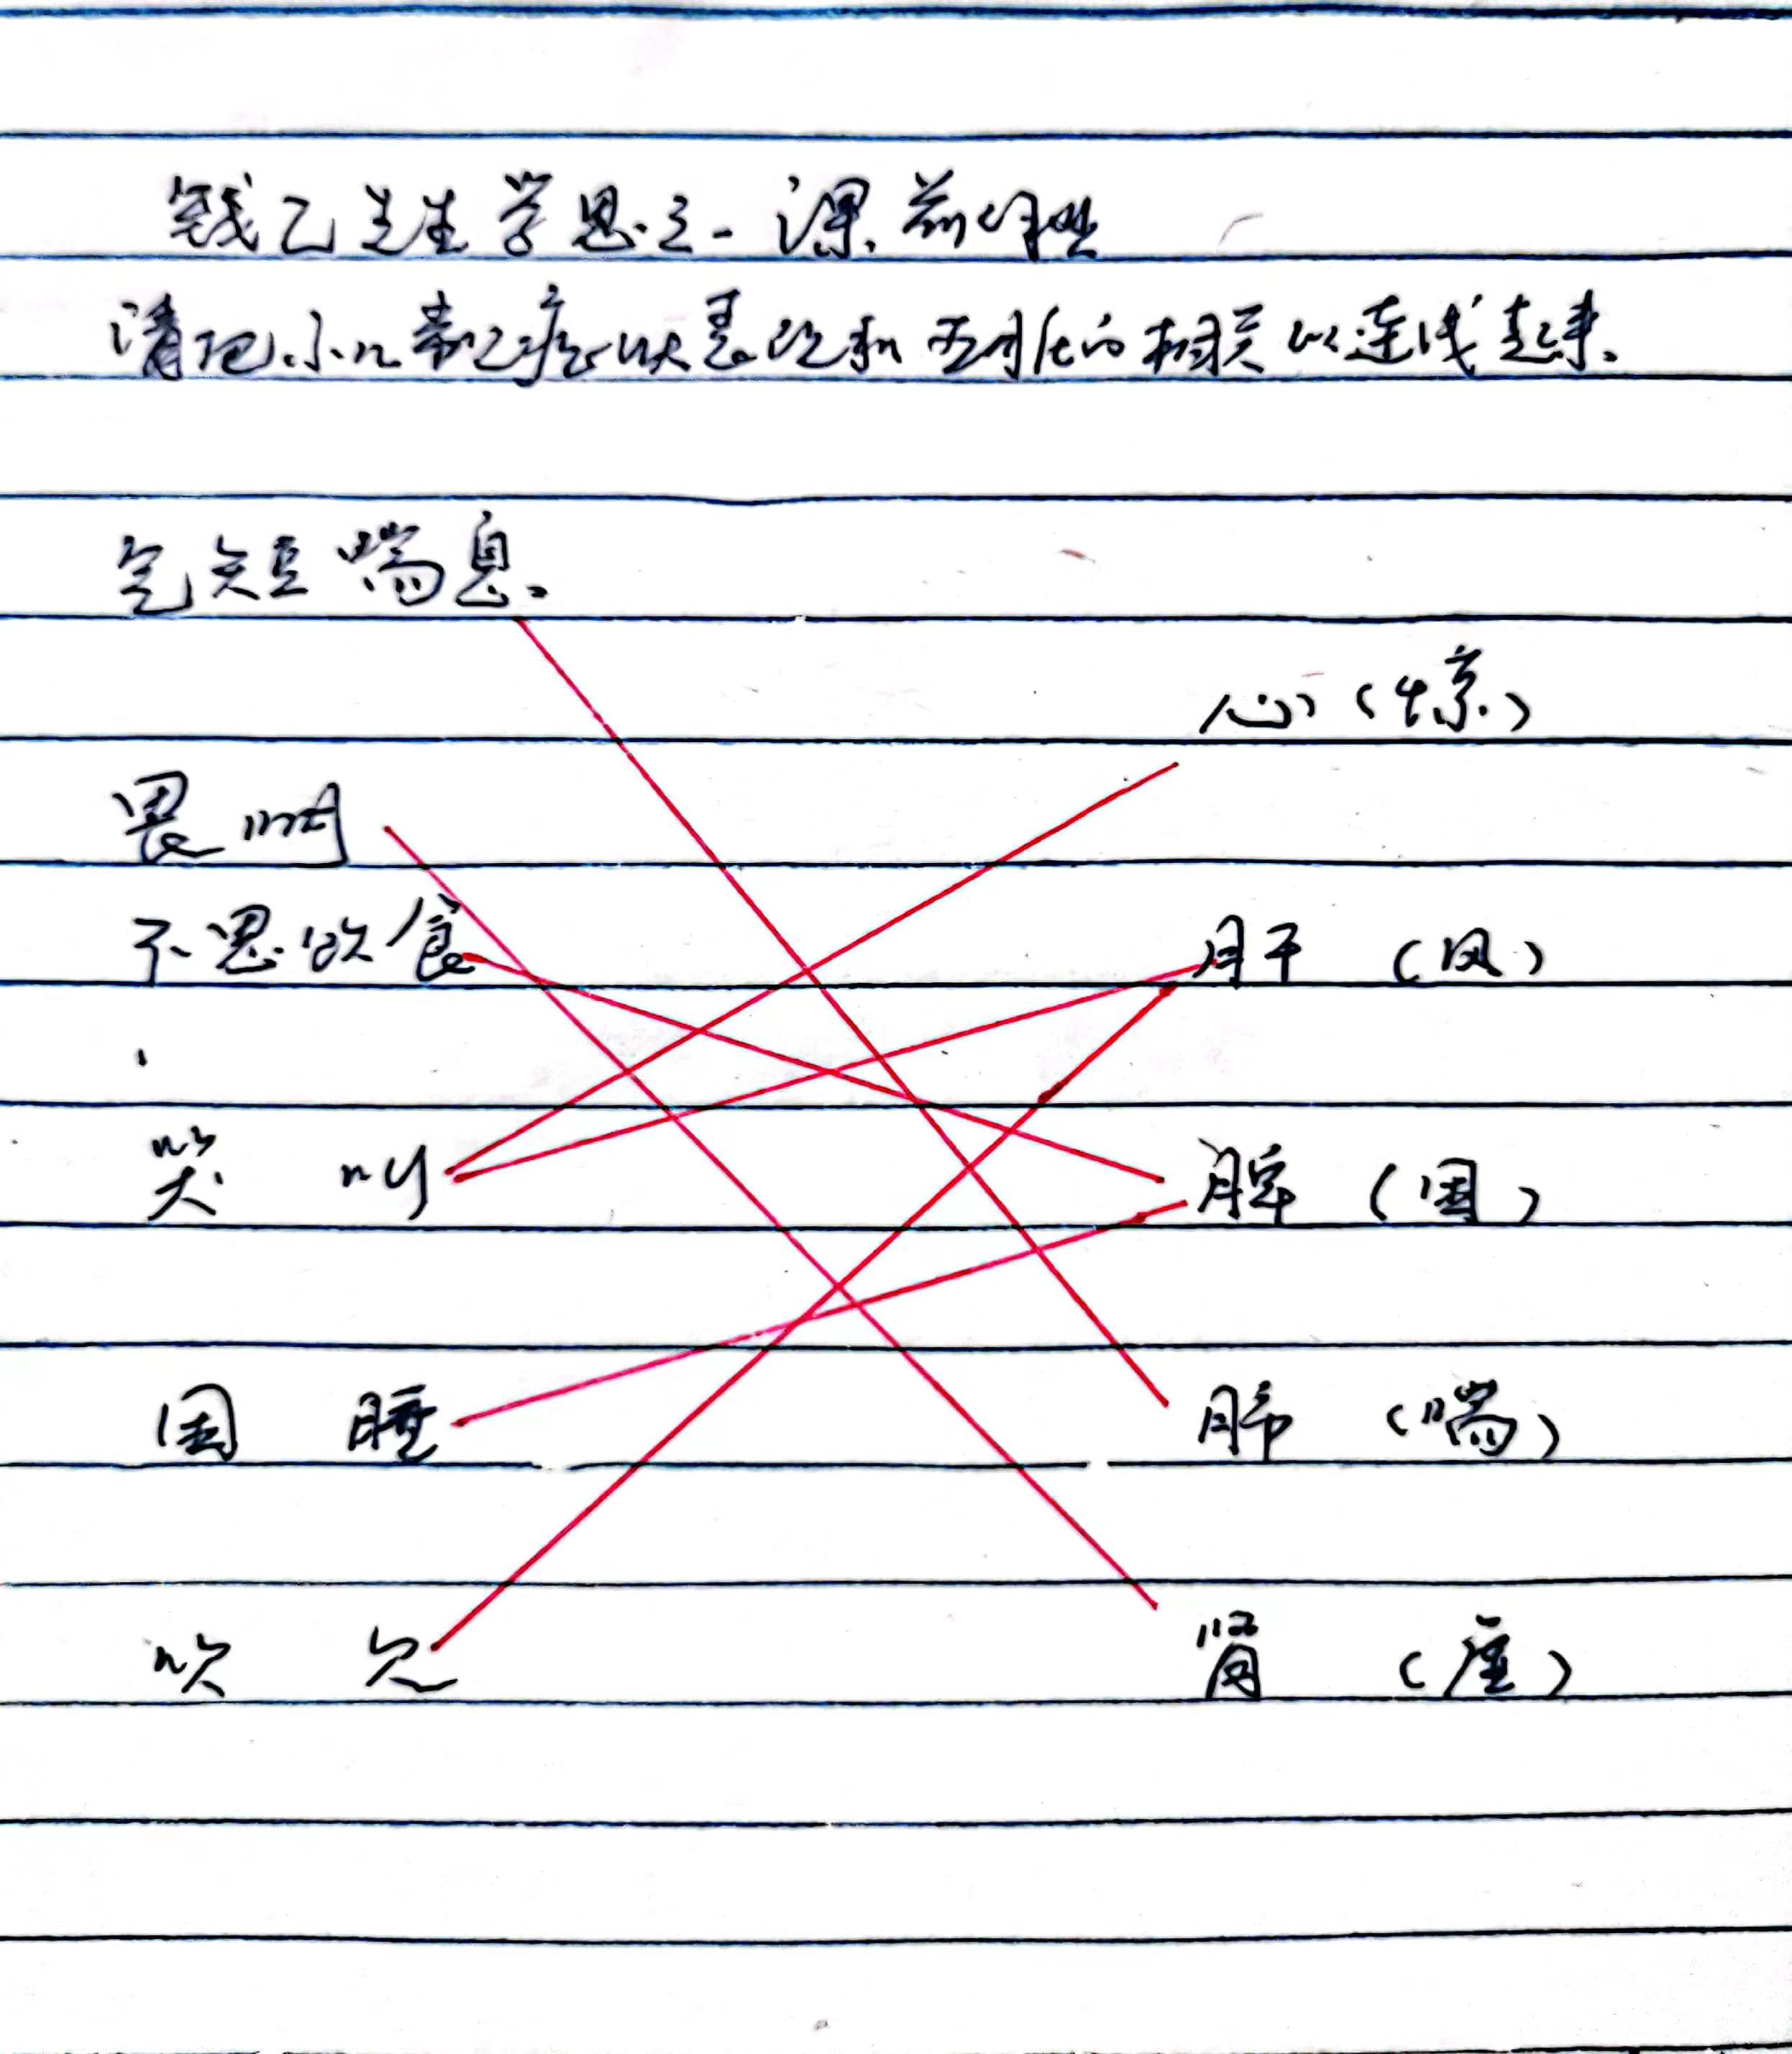 钱乙先生学思之一 课前
请把小儿常见症状表现和五脏的相关以连线起来.
气短喘息.
心 (惊)
畏明
不思饮食
肝 (风)
哭 叫
脾 (困)
困 睡
肺 (喘)
呵 欠
肾 (虚)